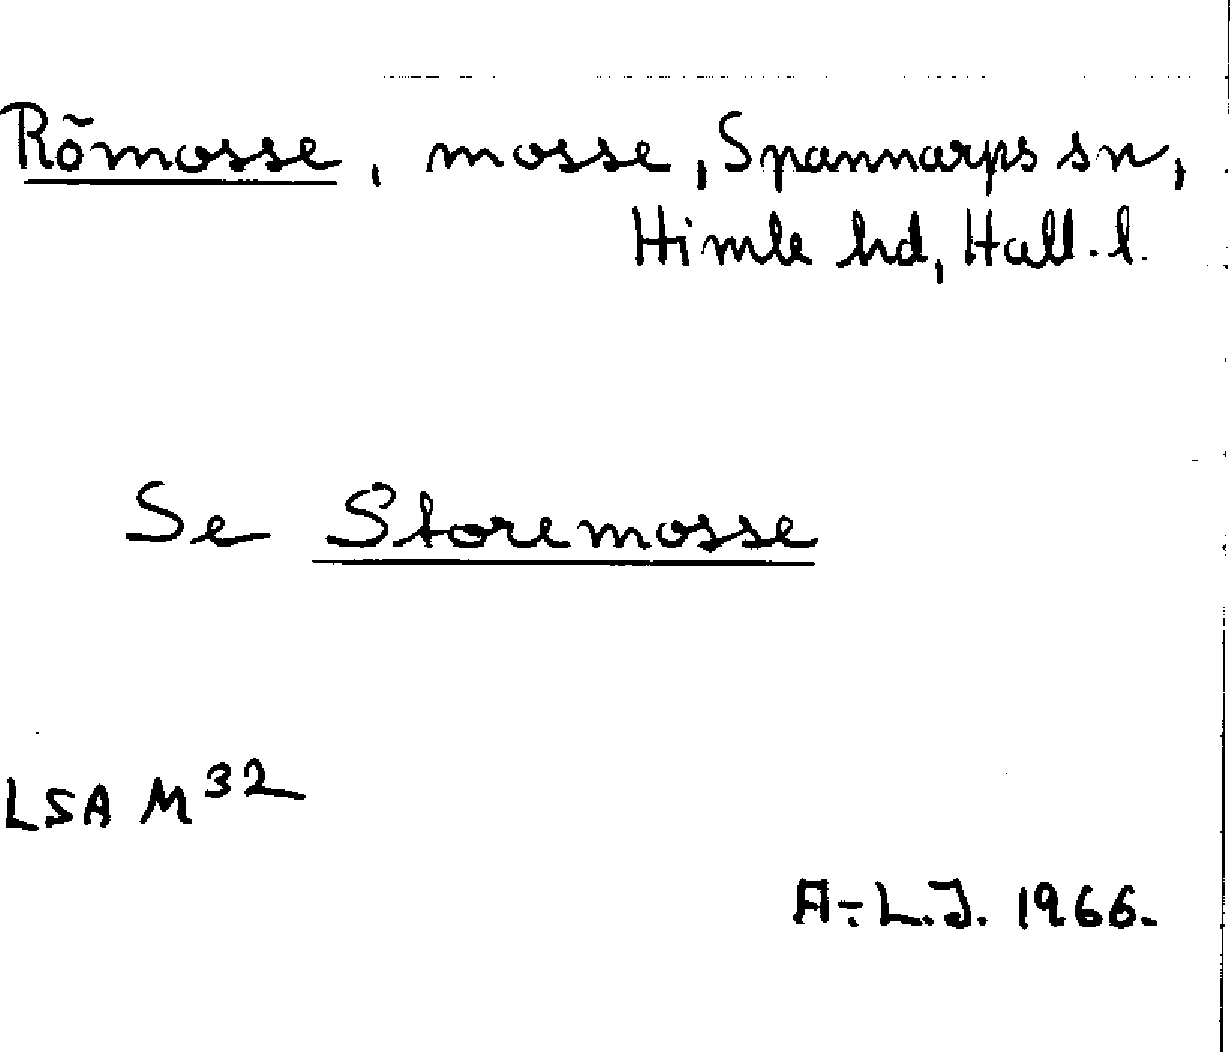 Rõmosse, mosse, Spannarps sn,
Himle hd, Hall. l.
Se Storemosse
LSA M32
A.-L.J. 1966.